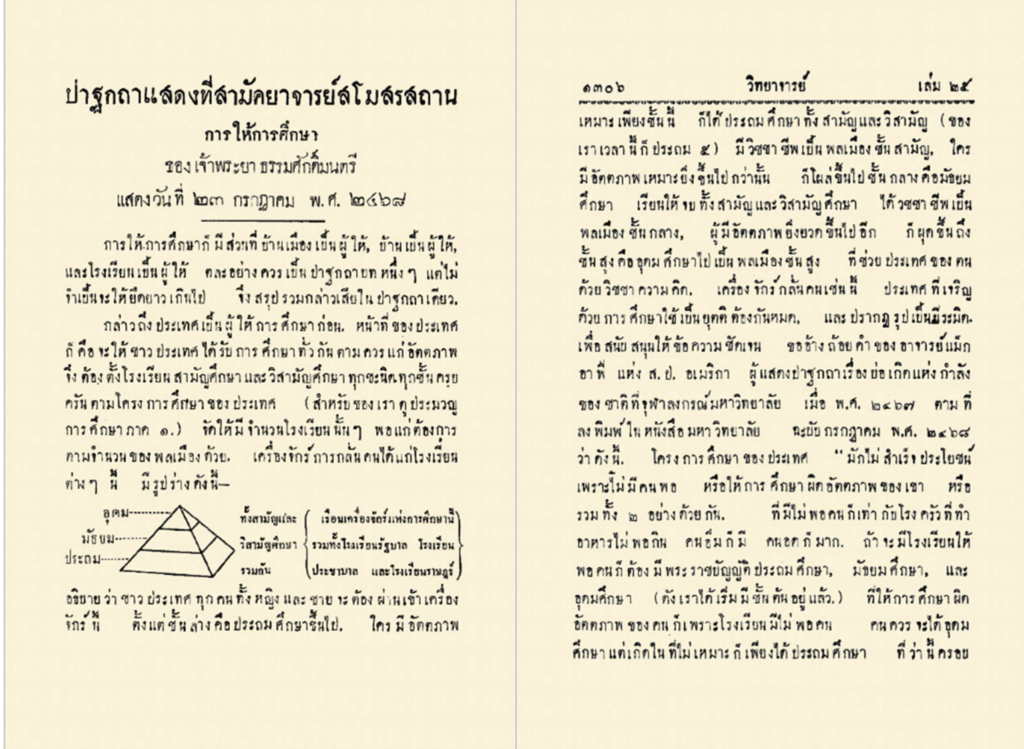 ปาฐกถาแสดงที่สามัคยาจารย์สโมสรสถาน
การให้การศึกษา
ของ เจ้าพระยา ธรรมศักดิ์มนตรี
แสดงวันที่ ๒๓ กรกฎาคม พ.ศ. ๒๔๖๘
การให้การศึกษาก็มีส่วนที่บ้านเมืองเป็นผู้ให้, บ้านเป็นผู้ให้,
และโรงเรียนเป็นผู้ให้ ตละอย่างควรเป็นปาฐกถาบทหนึ่งๆ แต่ไม่
จำเป็นจะให้ยืดยาวเกินไป จึงสรุปรวมกล่าวเสียในปาฐกถาเดียว.
กล่าวถึงประเทศเป็นผู้ให้การศึกษาก่อน. หน้าที่ของประเทศ
ก็คือจะให้ชาวประเทศได้รับการศึกษาทั่วกันตามควรแก่อัตตภาพ
จึงต้องตั้งโรงเรียนสามัญศึกษาและวิสามัญศึกษาทุกชะนิดทุกชั้นครบ
ครันตามโครงการศึกษาของประเทศ (สำหรับของเราดูประมวญ
การศึกษาภาค ๑.) จัดให้มีจำนวนโรงเรียนนั้นๆ พอแก่ต้องการ
ตามจำนวนของพลเมืองด้วย. เครื่องจักร์การกลั่นคนได้แก่โรงเรียน
ต่างๆ นี้ มีรูปร่างดังนี้—
อุดม
มัธยม
ประถม
ทั้งสามัญและ
วิสามัญศึกษา
รวมกัน
เรือนเครื่องจักร์แห่งการศึกษานี้
รวมทั้งโรงเรียนรัฐบาล โรงเรียน
ประชาบาล และโรงเรียนราษฎร์
อธิบายว่าชาวประเทศทุกคนทั้งหญิงและชายจะต้องผ่านเข้าเครื่อง
จักร์นี้ ตั้งแต่ชั้นล่างคือประถมศึกษาขึ้นไป. ใครมีอัตตภาพ
๑๓๐๖ วิทยาจารย์ เล่ม ๒๕
เหมาะเพียงชั้นนี้ ก็ได้ประถมศึกษาทั้งสามัญและวิสามัญ (ของ
เราเวลานี้ก็ประถม ๕) มีวิชชาชีพเป็นพลเมืองชั้นสามัญ, ใคร
มีอัตตภาพเหมาะยิ่งขึ้นไปกว่านั้น ก็โผล่ขึ้นไปชั้นกลางคือมัธยม
ศึกษา เรียนให้จบทั้งสามัญและวิสามัญศึกษา ได้วิชชาชีพเป็น
พลเมืองชั้นกลาง, ผู้มีอัตตภาพยิ่งยวดขึ้นไปอีก ก็ผุดขึ้นถึง
ชั้นสูงคืออุดมศึกษาไปเป็นพลเมืองชั้นสูง ที่ช่วยประเทศของตน
ด้วยวิชชาความคิด. เครื่องจักร์กลั่นคนเช่นนี้ ประเทศที่เจริญ
ด้วยการศึกษาใช้เป็นยุตติต้องกันหมด, และปรากฏรูปเป็นปิระมิด.
เพื่อสนับสนุนให้ข้อความชัดเจน ขออ้างถ้อยคำของอาจารย์แม็ก
อาฟี แห่ง ส.ป. อเมริกา ผู้แสดงปาฐกถาเรื่องบ่อเกิดแห่งกำลัง
ของชาติที่จุฬาลงกรณ์มหาวิทยาลัย เมื่อ พ.ศ. ๒๔๖๗ ตามที่
ลงพิมพ์ในหนังสือมหาวิทยาลัย ฉะบับกรกฎาคม พ.ศ. ๒๔๖๘
ว่าดังนี้. โครงการศึกษาของประเทศ “มักไม่สำเร็จประโยชน์
เพราะไม่มีคนพอ หรือให้การศึกษาผิดอัตตภาพของเขา หรือ
รวมทั้ง ๒ อย่างด้วยกัน. ที่มีไม่พอคนก็เท่ากับโรงครัวที่ทำ
อาหารไม่พอกิน คนอิ่มก็มี คนอดก็มาก. ถ้าจะมีโรงเรียนให้
พอคนก็ต้องมีพระราชบัญญัติประถมศึกษา, มัธยมศึกษา, และ
อุดมศึกษา (ดังเราได้เริ่มมีชั้นต้นอยู่แล้ว.) ที่ให้การศึกษาผิด
อัตตภาพของคนก็เพราะโรงเรียนมีไม่พอคน คนควรจะได้อุดม
ศึกษาแต่เกิดในที่ไม่เหมาะก็เพียงได้ประถมศึกษา ที่ว่านี้ครอบ